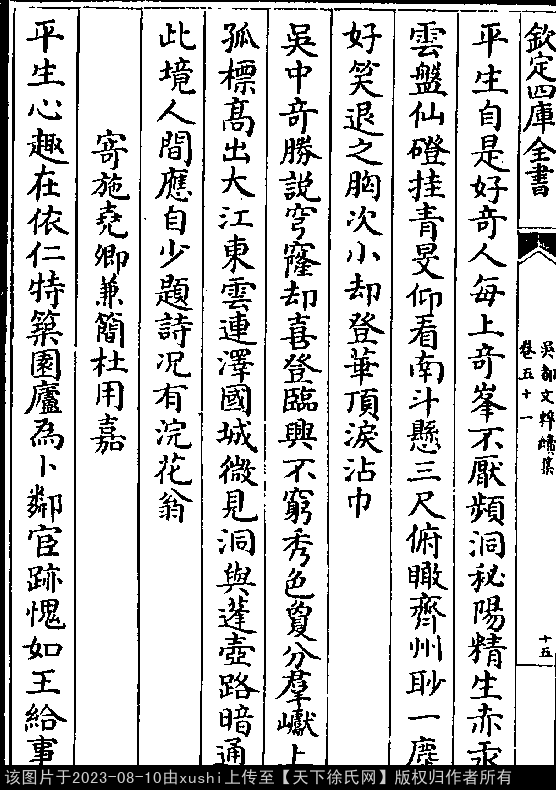 欽定四庫全書
吳都文粹續集
卷五十一
十五
平生自是好奇人每上奇峯不厭頻洞秘陽精生赤汞
雲盤仙磴挂青旻仰看南斗懸三尺俯瞰齊州眇一塵
好笑退之胸次小却登華頂淚沾巾
吳中奇勝說穹窿却喜登臨興不窮秀色夐分羣巘上
孤標髙出大江東雲連澤國城微見洞與蓬壺路暗通
此境人間應自少題詩况有浣花翁
寄施堯卿兼簡杜用嘉
平生心趣在依仁特築園廬為卜鄰宦跡愧如王給事
该图片于2023-08-10由xushi上传至【天下徐氏网】版权归作者所有